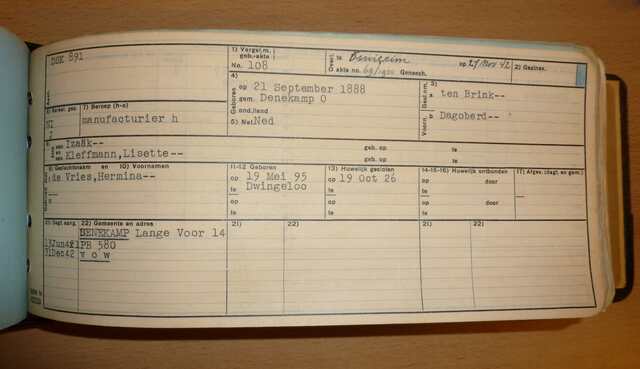 DGK 891
1) Vergel.m. geb.-akte
No. 108
Overl. te op 29 Nov 42
akte no. Gensch.
2) Gezinsv.
4)
Geboren
op 21 September 1888
gem. Denekamp O
and.land
5) Nat Ned
3)
Gesl.nm.
a ten Brink--
Voorn.
b Dagoberd--
6) Kerkel. gez.
NI
7) Beroep (h-o)
manufacturier h
Izaäk--
Kleffmann, Lisette--
geb. op
geb. op
te
te
8) Geslachtsnaam en 10) Voornamen
de Vries, Hermina--
11-12 Geboren
op 19 Mei 95
te Dwingeloo
op
te
13) Huwelijk gesloten
op 19 Oct 26
te
op
te
14-15-16) Huwelijk ontbonden
op door
te
op door
te
17) Afges. (dagt. en gem.)
21) Dagt. aang.
22) Gemeente en adres
21)
22)
21)
22)
DENEKAMP Lange Voor 14
PB 580
31Dec42 V O W